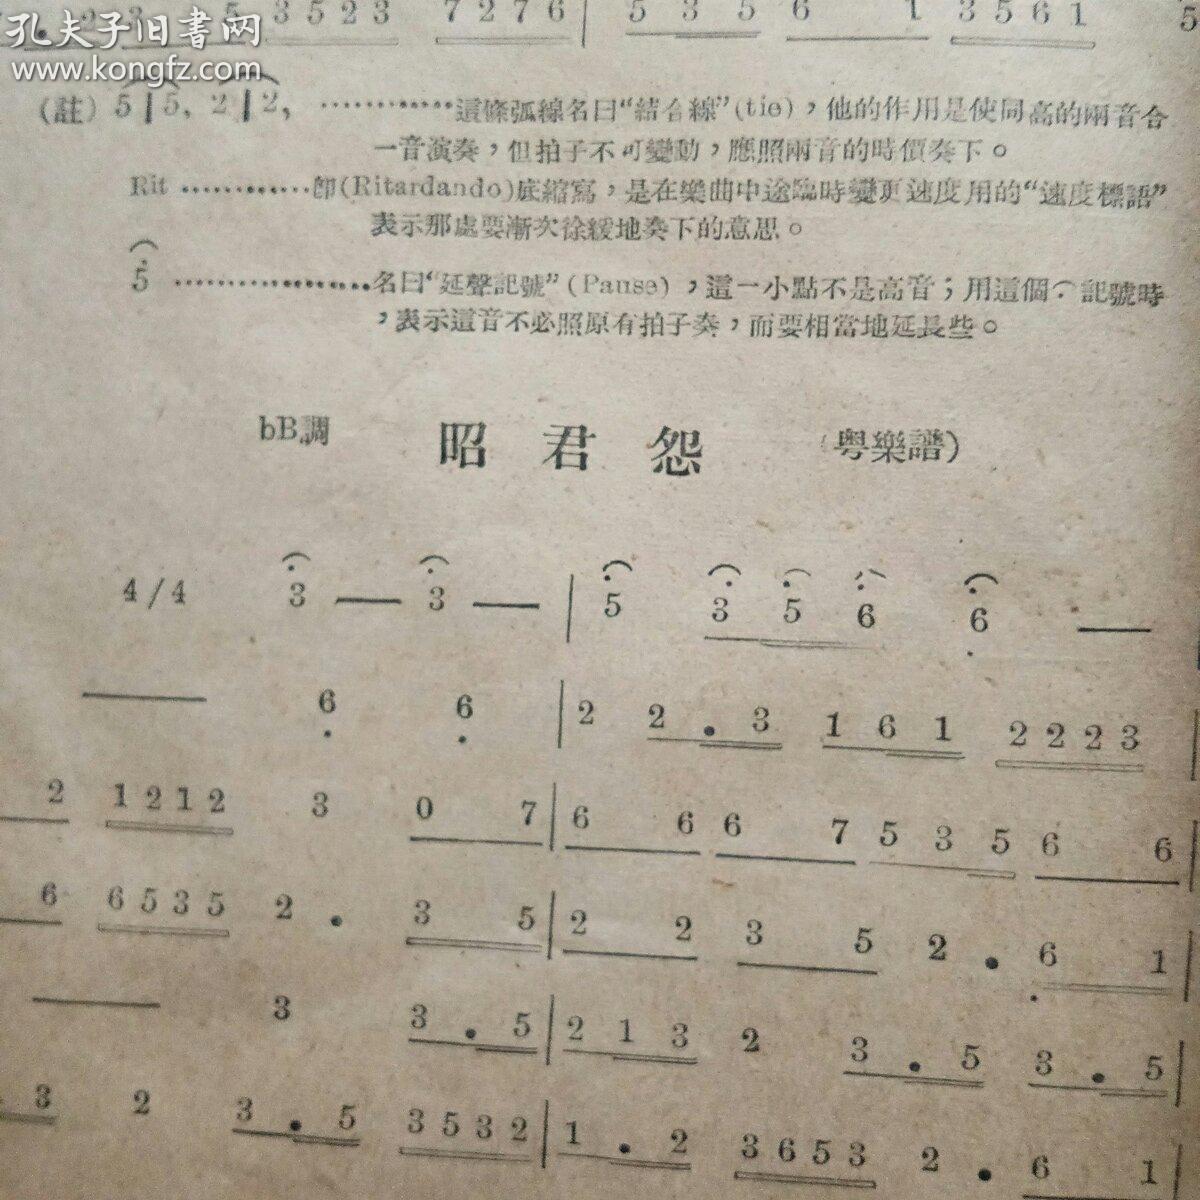 2 3 5 3523 7276 | 5 3 5 6 1 3561 5
孔夫子旧書网
www.kongfz.com
(註) 5 | 5, 2 | 2, …………這條弧線名曰“結合線”(tie)，他的作用是使同高的兩音合
一音演奏，但拍子不可變動，應照兩音的時價奏下。
Rit …………即(Ritardando)底縮寫，是在樂曲中途臨時變更速度用的“速度標語”
表示那處要漸次徐緩地奏下的意思。
5 ………………名曰“延聲記號”(Pause)，這一小點不是高音；用這個 記號時
，表示這音不必照原有拍子奏，而要相當地延長些。
bB調 昭君怨 (粤樂譜)
4/4 3 — 3 — | 5 3 5 6 6 —
— 6 6 | 2 2 . 3 1 6 1 2223 |
2 1212 3 0 7 | 6 6 6 7 5 3 5 6 6 |
6 6535 2 . 3 5 | 2 2 3 5 2 . 6 1 |
— 3 3 . 5 | 2 1 3 2 3 . 5 3 . 5 |
3 2 3 . 5 3532 | 1 . 2 3653 2 . 6 1 |